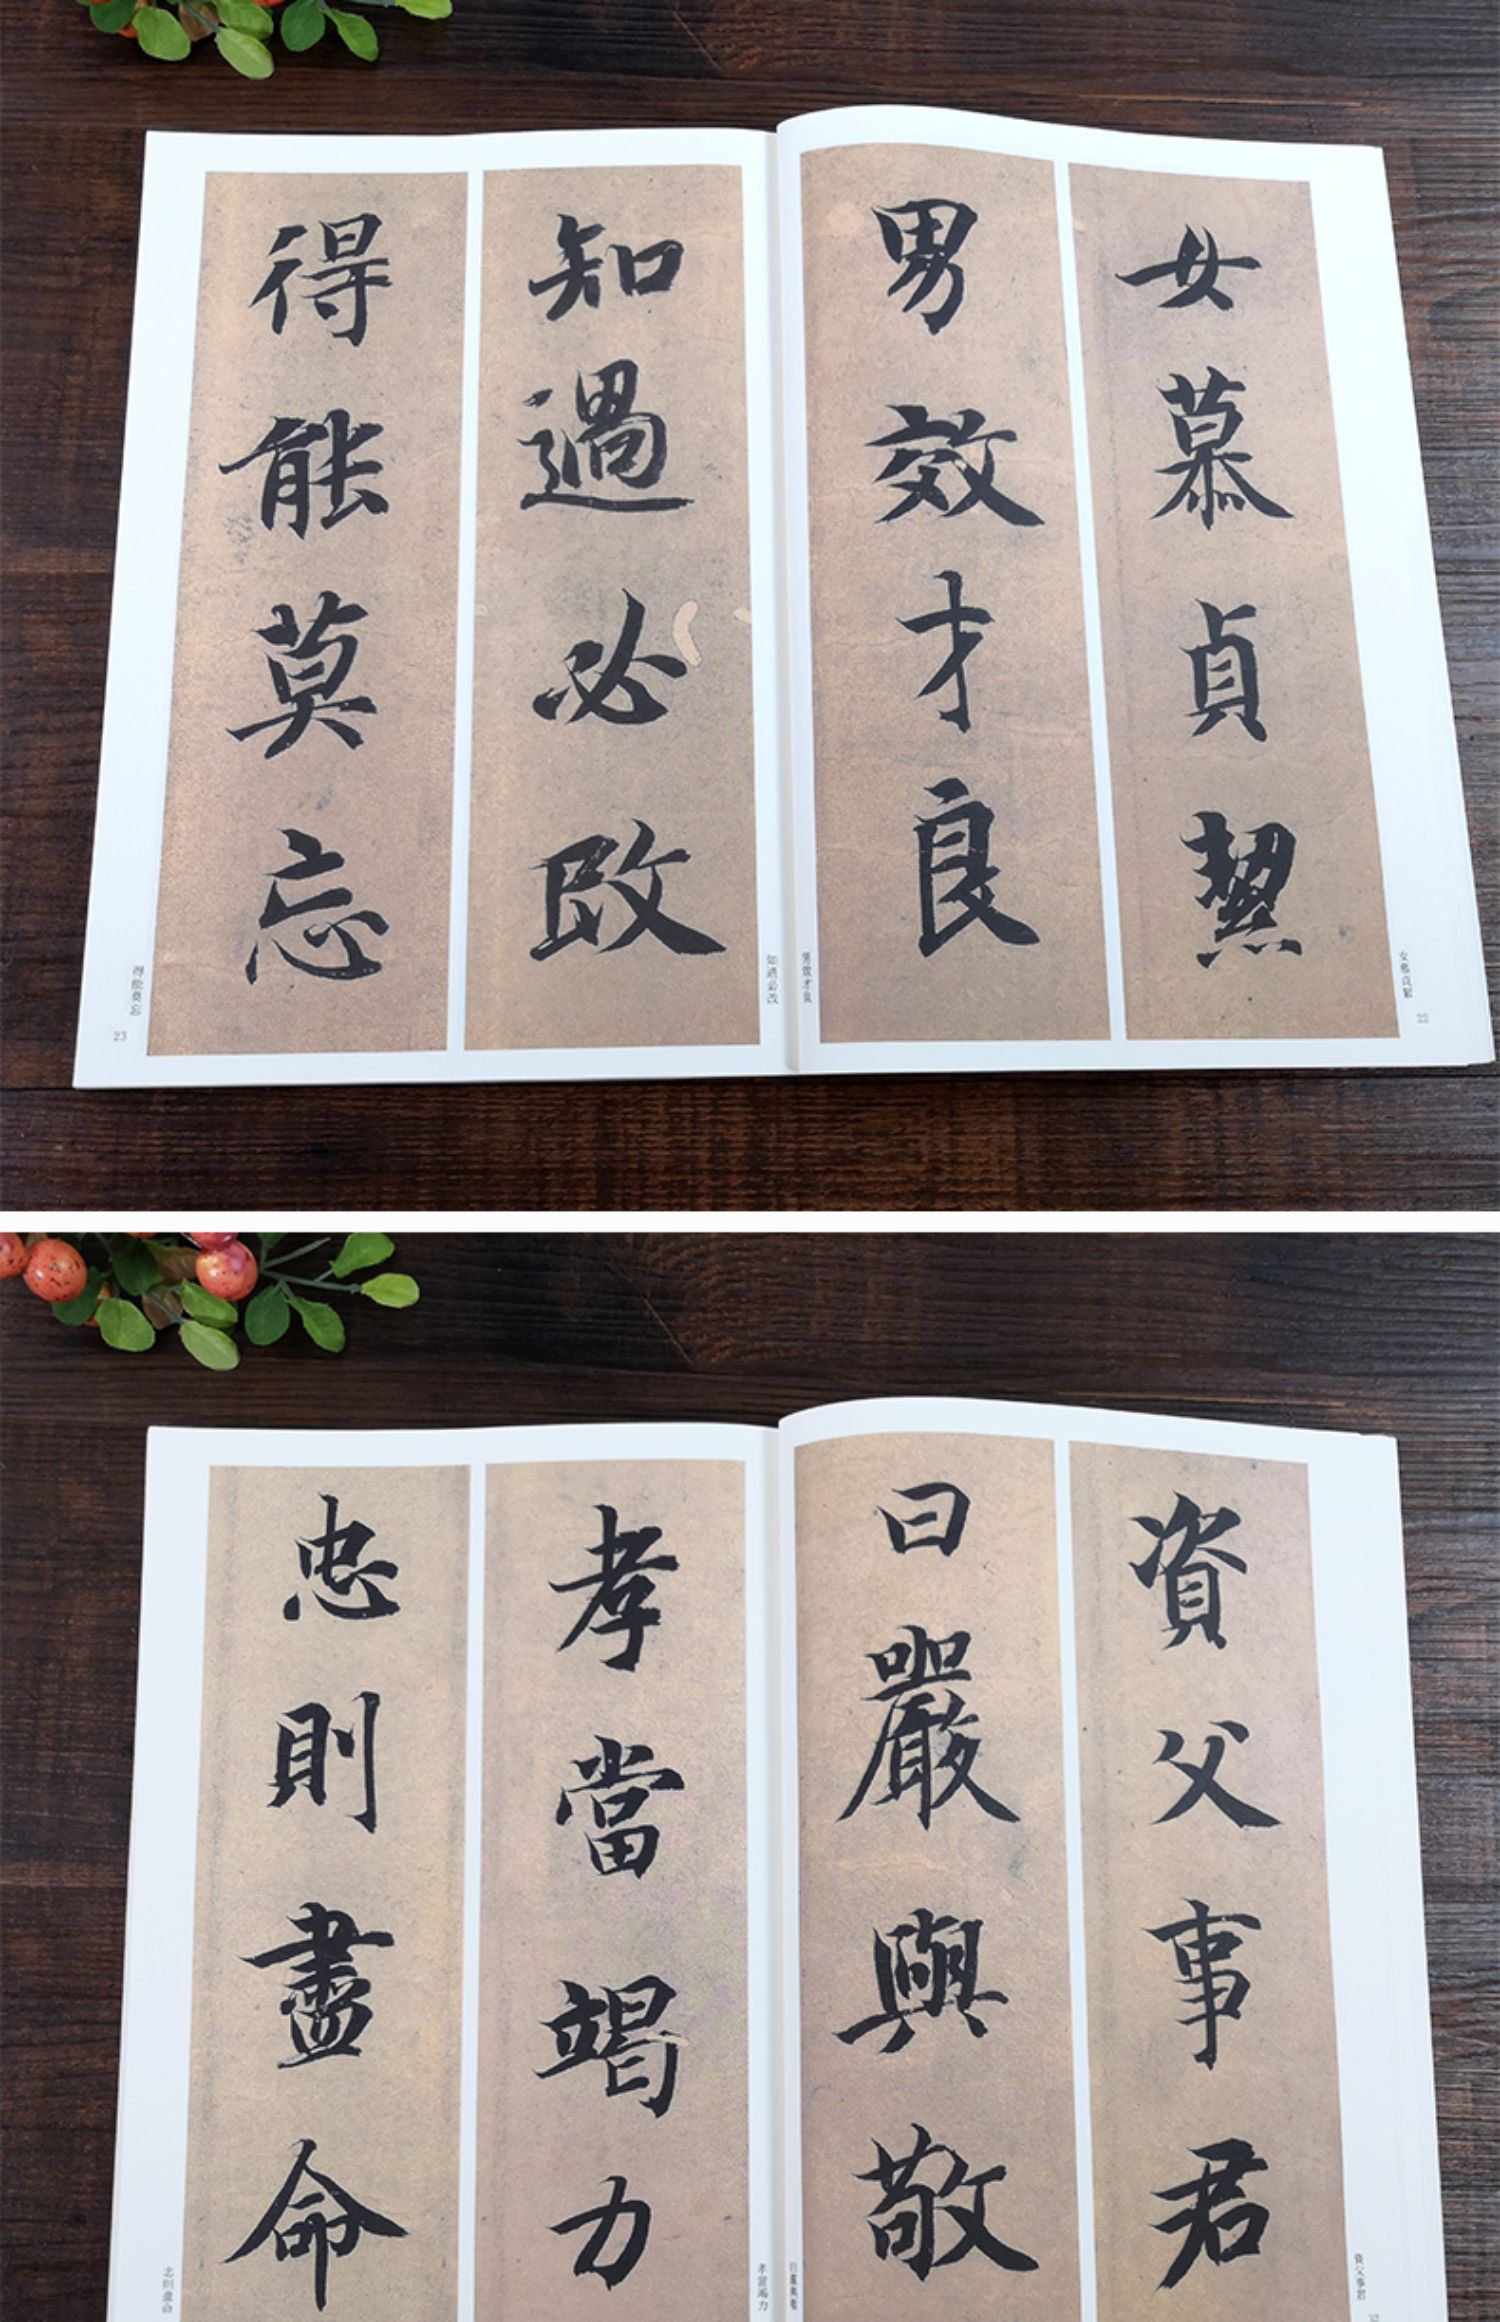 女慕貞絜
女慕貞絜
22
男效才良
男效才良
知過必改
知過必改
得能莫忘
得能莫忘
23
資父事君
資父事君
曰嚴與敬
曰嚴與敬
孝當竭力
孝當竭力
忠則盡命
忠則盡命